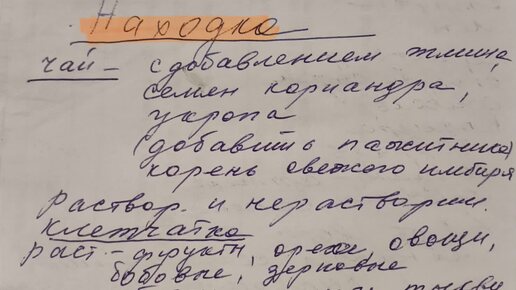 Находка
чай – с добавлением тмина,
семен кориандра,
укропа
(добавить пажитника)
корень свежого имбиря
раствор. и нерастворим.
клетчатка
раст – фрукты, орехи, овощи,
бобовые, зерновые